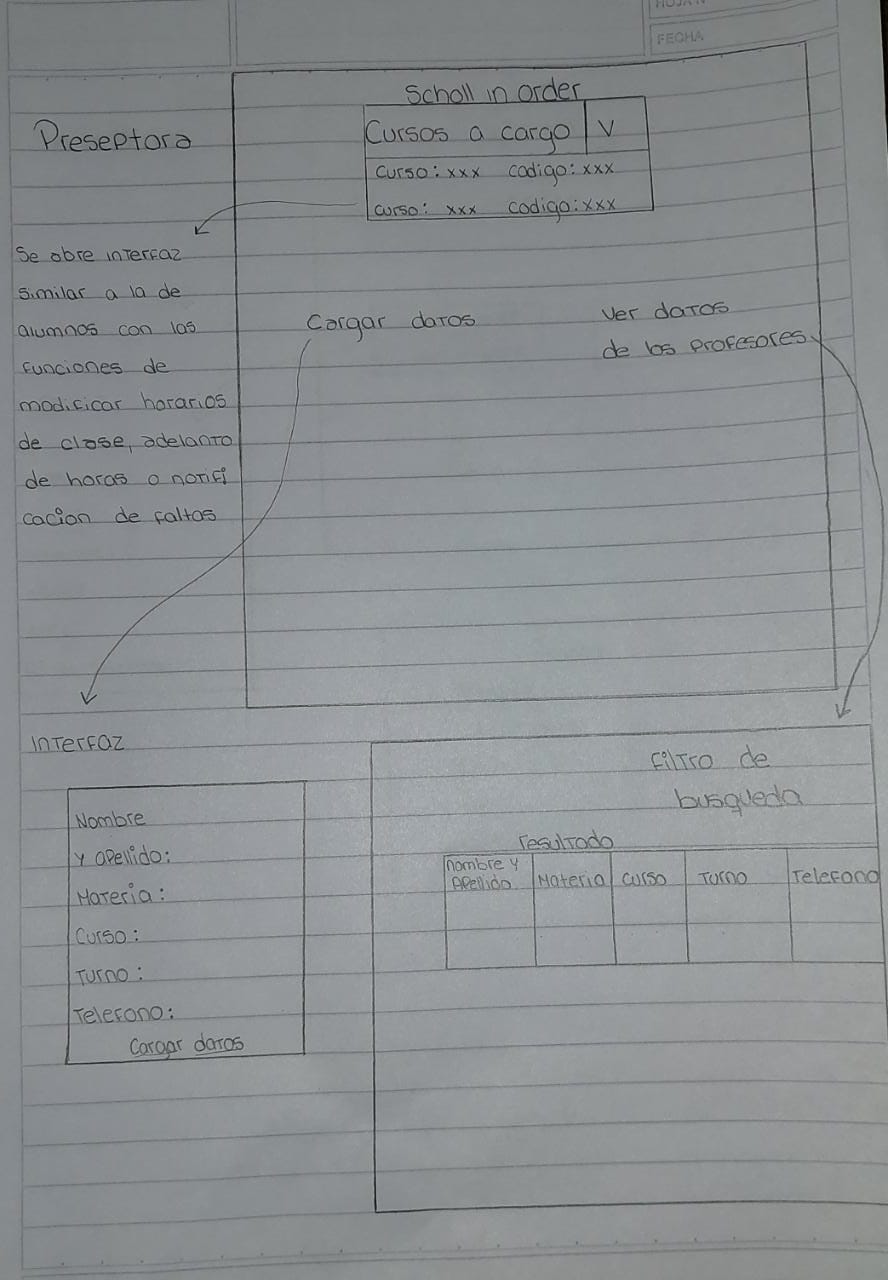 HOJA N
FECHA
Preseptora
Scholl in order
Cursos a cargo V
curso: xxx codigo: xxx
curso: xxx codigo: xxx
Se abre interfaz
similar a la de
alumnos con las
funciones de
modificar horarios
de clase, adelanto
de horas o notifi
cacion de faltas
Cargar datos
Ver datos
de los profesores
Interfaz
Nombre
y apellido:
Materia:
Curso:
Turno:
Telefono:
Cargar datos
Filtro de
busqueda
resultado
nombre y
Apellido Materia curso Turno Telefono